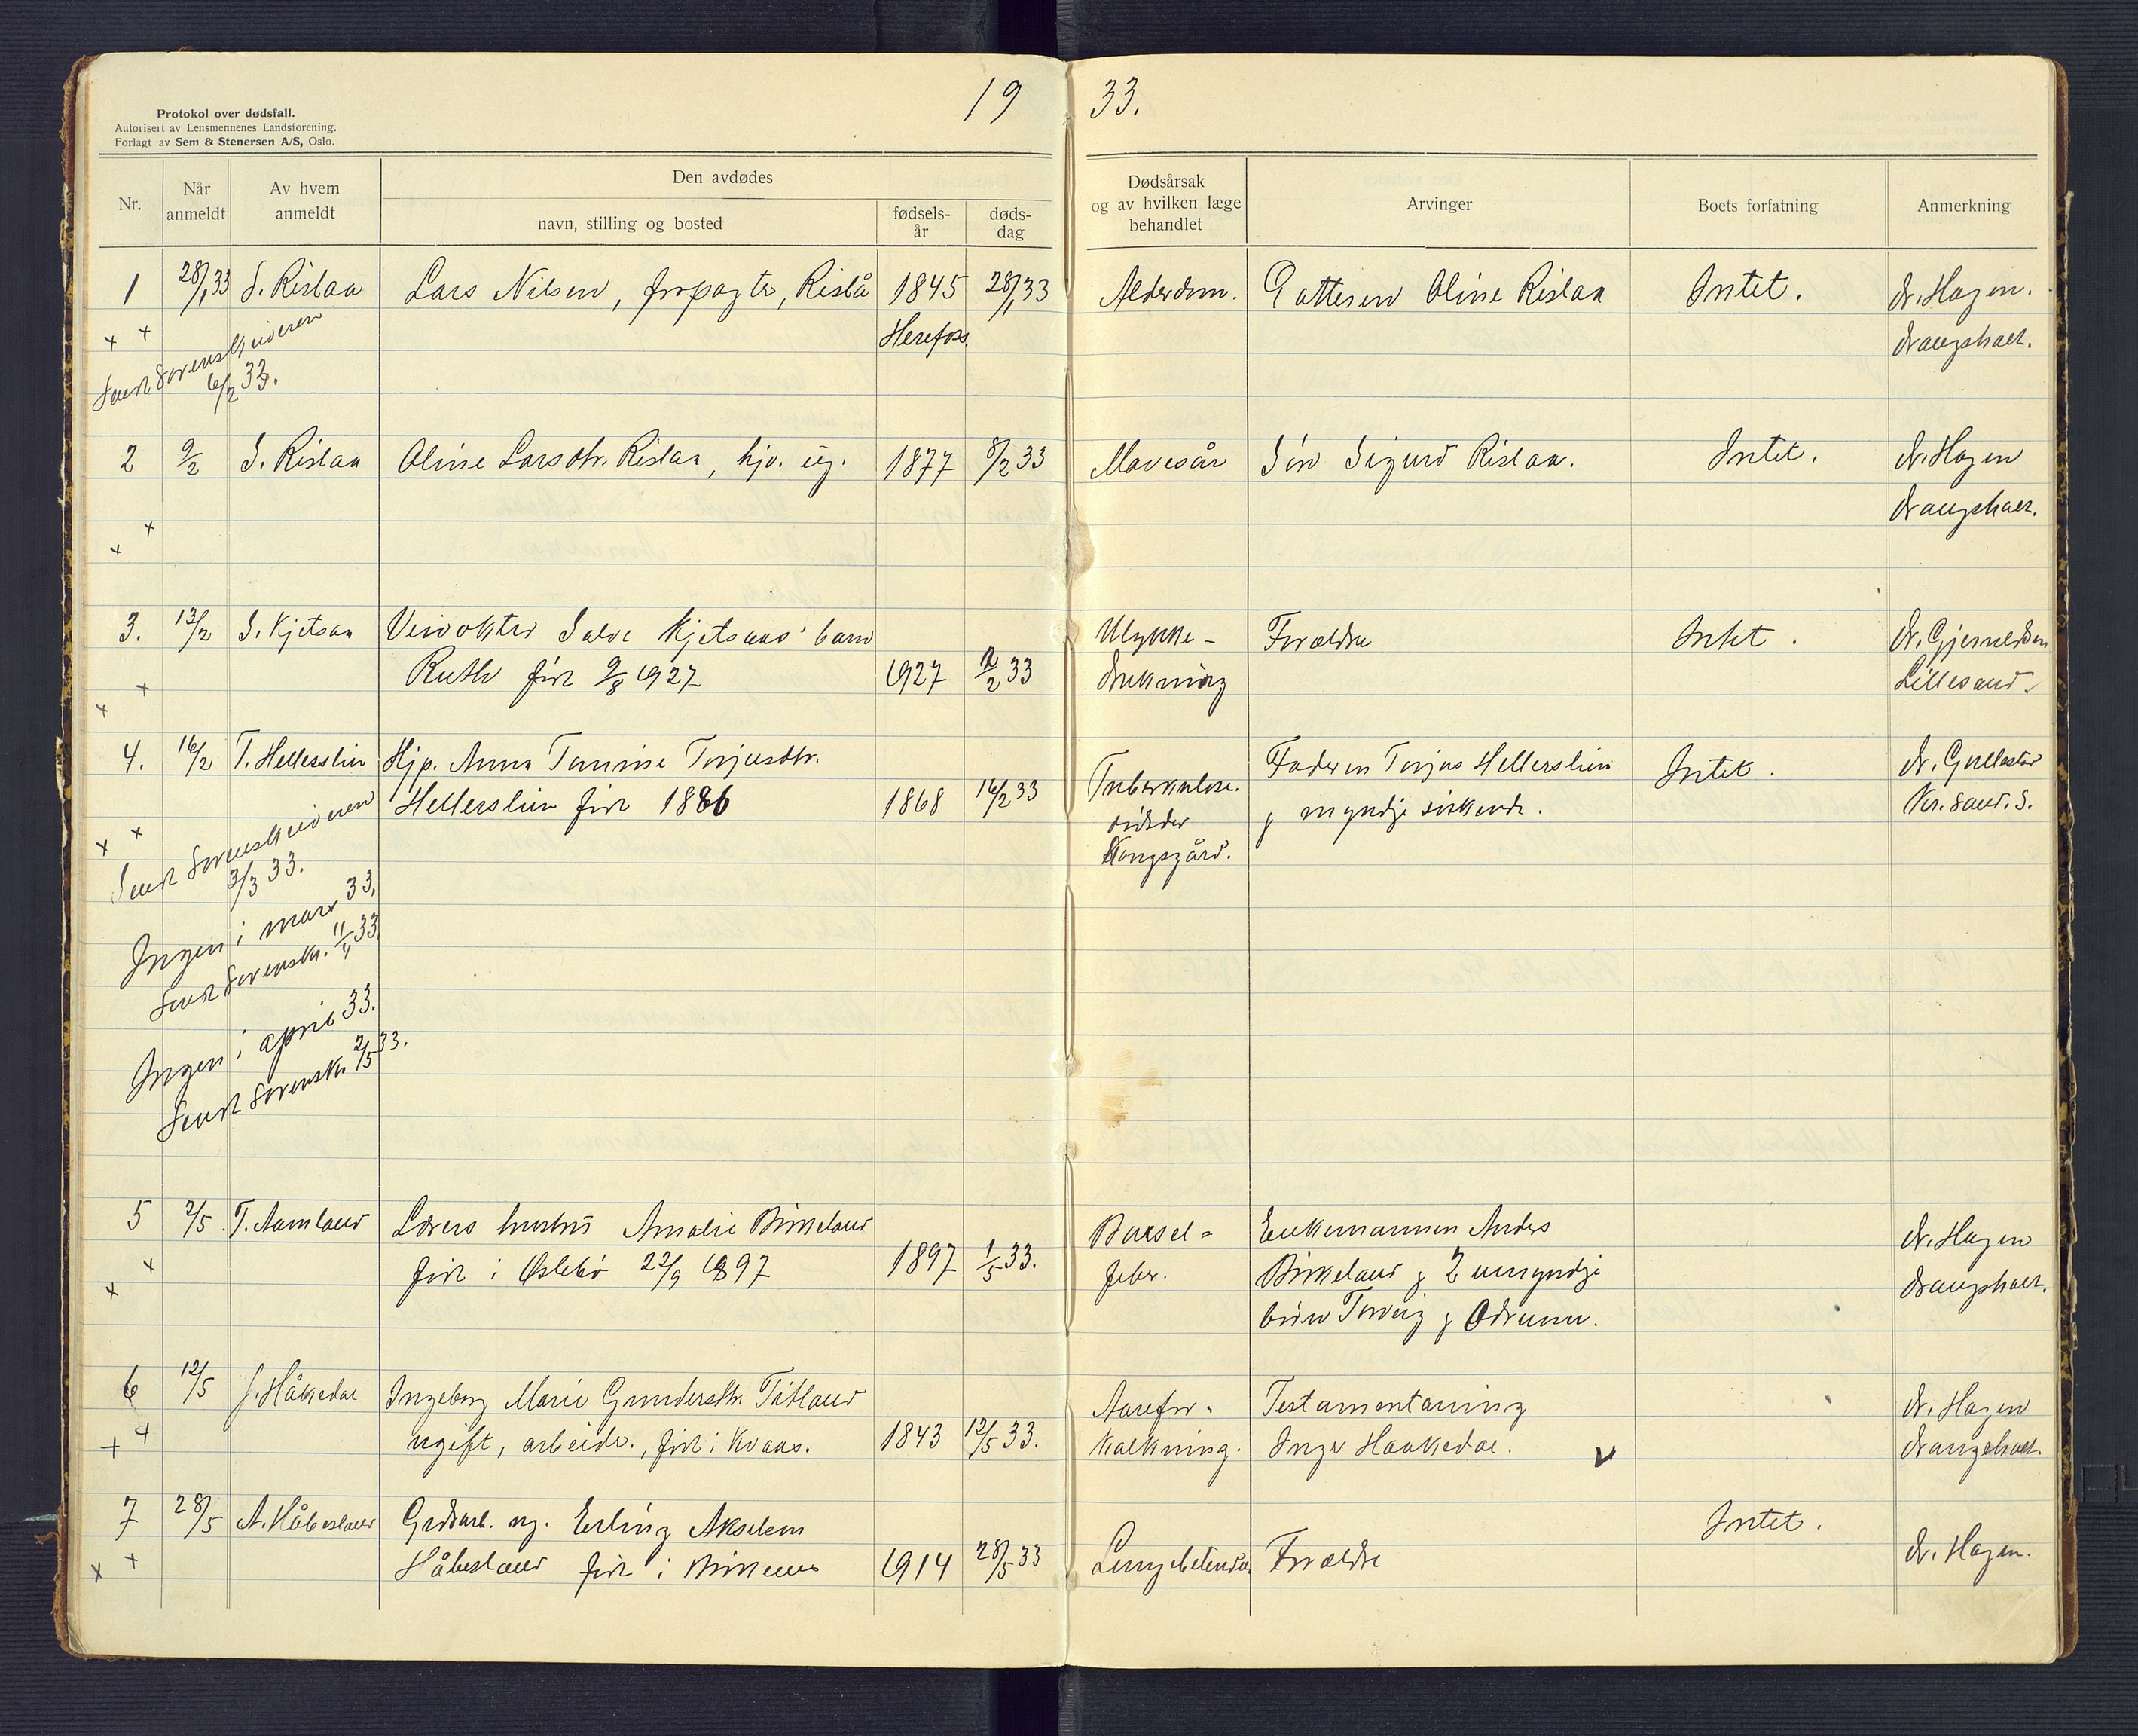 19 33.
Protokol over dødsfall.
Autorisert av Lensmennenes Landsforening.
Forlagt av Sem & Stenersen A/S, Oslo.
Nr.
Når anmeldt
Av hvem anmeldt
Den avdødes
navn, stilling og bosted
fødsels-år
døds-dag
Dødsårsak og av hvilken læge behandlet
Arvinger
Boets forfatning
Anmerkning
1 28/1 33 S. Rislaa Lars Nilsen, forpagter, Rislå 1845 28/1 33 Alderdom. Gattesen Oline Rislaa Intet. dr. Hagen.
Herefoss. Draugshaer.
Sendt Sorenskriveren
6/2 33.
2 9/2 S. Rislaa Oline Larsdtr. Rislaa, hjv. ug. 1877 8/2 33 Mavesår Søn Sigurd Rislaa. Intet. dr. Hagen
Draugshaer.
3. 13/2 S. Kjetsaa Veivokter Salve Kjetsaas' barn Ulykke- Foreldre Intet. dr. Gjerueldsen
Ruth før 9/8 1927 1927 12/2 33 drukning Lillesand.
4. 16/2 T. Hellerslien Hjp. Anna Tomine Torjusdtr. Faderen Torjus Hellerslien Intet. dr. Gullestad
Hellerslien før 1886 1868 16/2 33 Tuberkulose. g myndige søskende. Kr.sand. S.
Kongsgård.
Sendt Sorenskriveren
3/3 33.
Ingen i mars 33.
Sendt Sorenskr. 11/4 33.
Ingen i april 33.
Sendt Sorenskr. 2/5 33.
5 2/5 T. Aamland Lærers hustru Amalie Birkeland Barsel= Enkemannen Anders dr. Hagen
født i Øslebø 22/9 1897 1897 1/5 33. feber. Birkeland g 2 umyndige Draugshaer.
børn Torveig g Odrunn.
6 12/5 J. Håkedal Ingeborg Marie Gundersdtr. Titland Aarefor= Testamentarving dr. Hagen
ugift, arbeider., født i Kvaas. 1843 12/5 33. kalkning. Inger Haakedal. v Draugshaer.
7 28/5 A. Håbesland Grdsarb. ug. Erling Akselsen Intet.
Håbesland født i Birkenes 1914 28/5 33 Lungebetendelse Foreldre dr. Hagen.